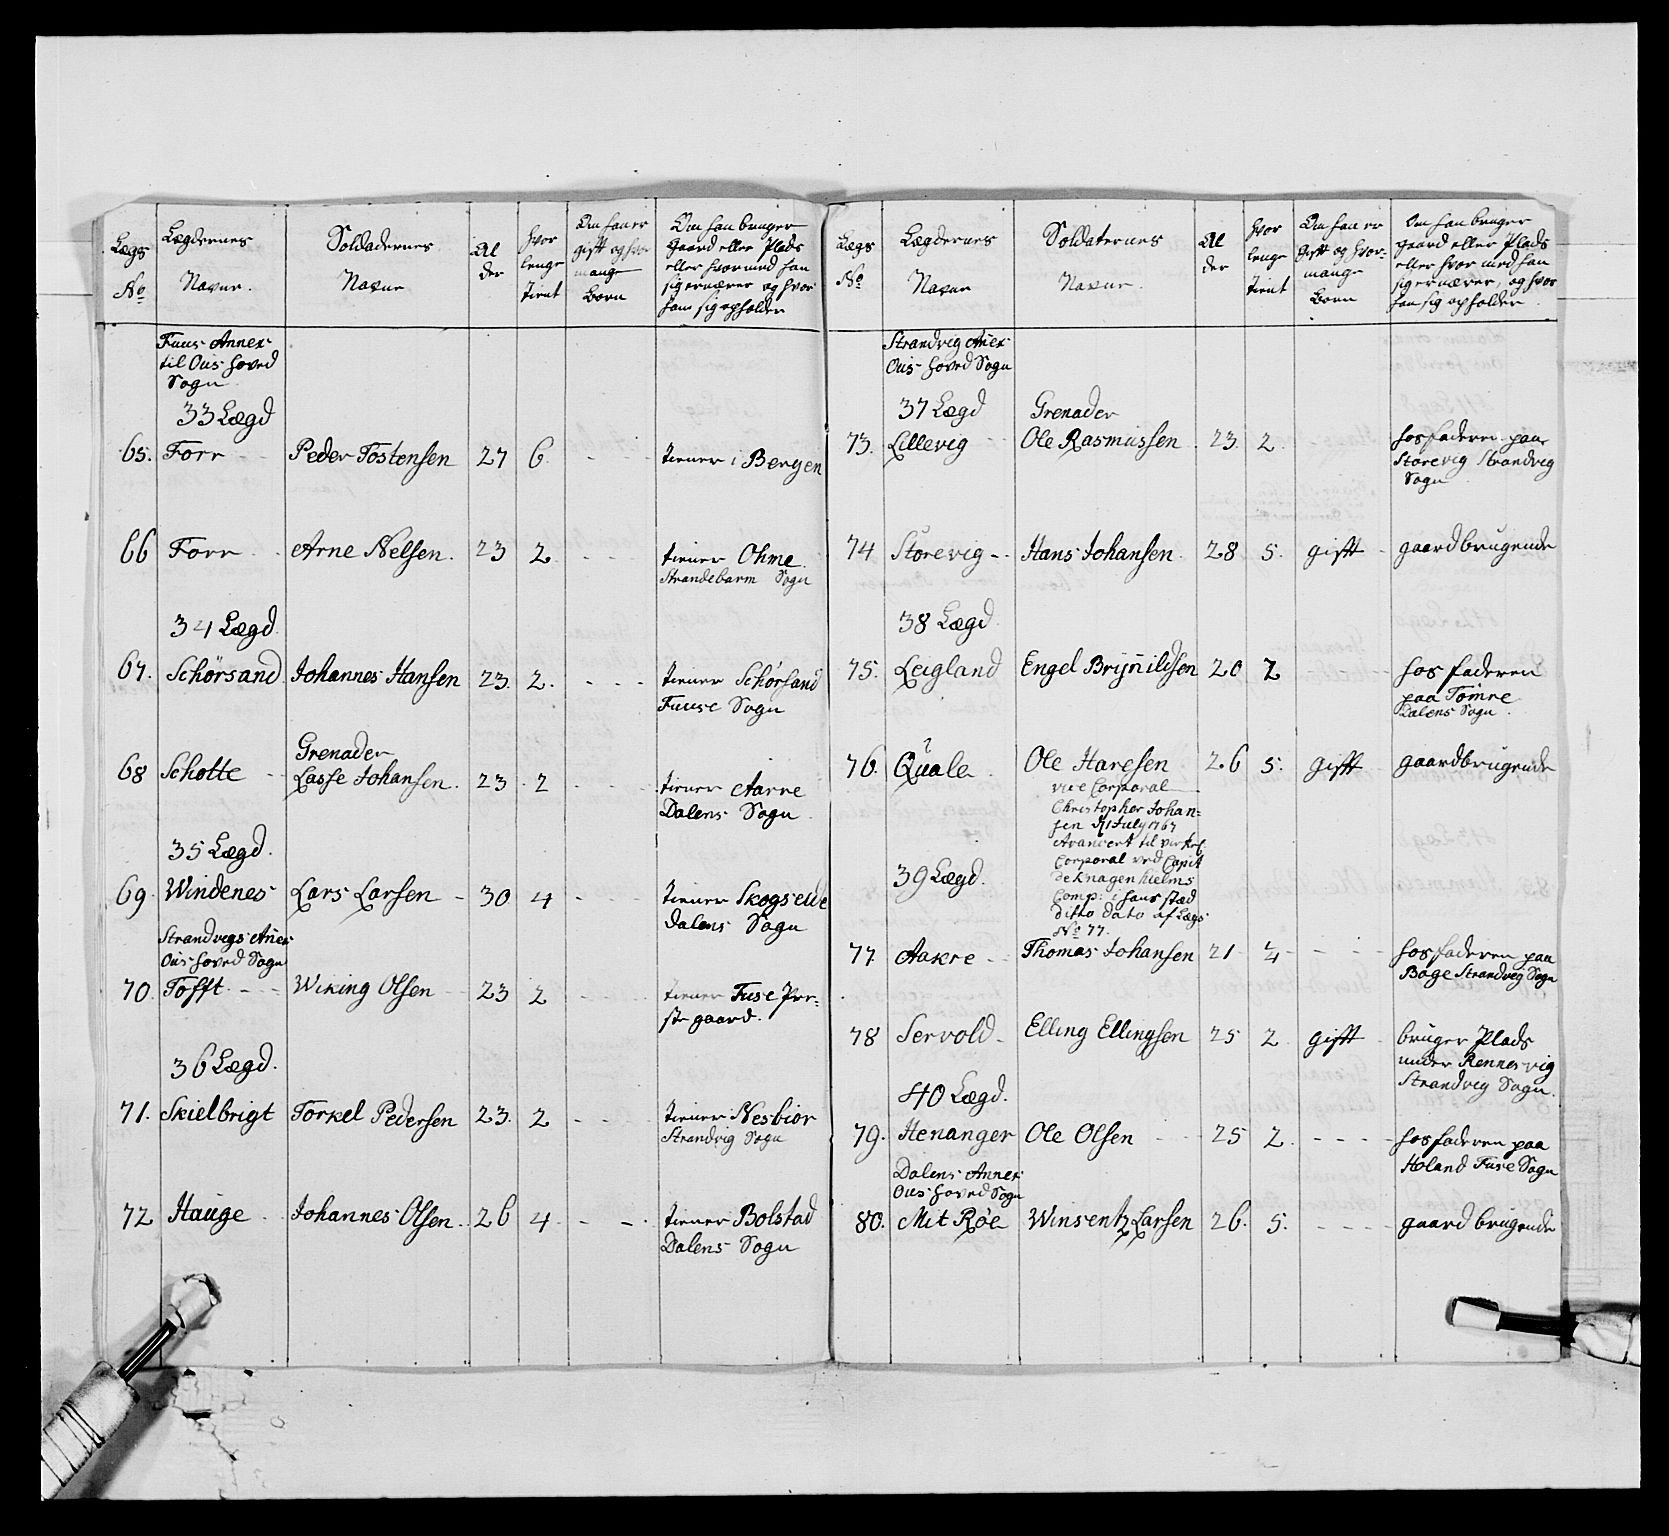 Lægs No | Lægdernes Navne. | Soldadernes Navne | Alder | hvor lenge tient | Om han er gift og hvor mange Børn | Om han bruger gaard eller Plads eller hvormed han sig ernærer og hvor han sig opholder
Fuus Annex
til Ous hoved
Sogn
33 Lægd
65. Forr - - Peder Tostensen 27 6. - - tiener i Bergen
66 Forr - - Arne Nelsen. 23 2 - - tiener Ohme
Strandebarm Sogn
34 Lægd
67. Schørsand Johannes Hansen 23. 2. - - - tiener Schørsand
Fuuse Sogn
Grenader
68 Schotte - - Lasse Johansen. 23. 2 - - - tiener Aarre
Dalens Sogn
35 Lægd.
69. Windenes Lars Larsen - 30 4 - - - tiener Skogseide
Dalens Sogn
Strandvigs Anex
Ous hoved Sogn
70. Tofft - - Wiking Olsen - 23 2 - - - tiener Fuse Præ-
ste gaard.
36 Lægd.
71. Skielbrigt Torkel Pedersen 23. 2 - - - tiener Nesbiør
Strandvig Sogn
72 Hauge - Johannes Olsen. 26 4 - - - tiener Bolstad
Dalens Sogn
Lægs No | Lægdernes Navne | Soldaternes Navne. | Alder | hvor lenge tient | Om han er Gift og hvor- mange Børn | Om han bruger gaard eller Plads eller hvor med han sig ernærer, og hvor han sig opholder
Strandvig Anex
Ous hoved Sogn
37 Lægd Grenader
73. Lillevig - - Ole Rasmussen 23. 2. - hos faderen paa
Storevig Strandvig
Sogn
74 Storevig - - Hans Johansen 28 5. gift - gaardbrugende
38 Lægd
75. Leigland Engel Brijnildsen 20 2 - - - hos faderen
paa Tømre
Dalens Sogn
76. Quale Ole Haresen 26 5. gift gaardbrugende
vice Corporal
Christopher Johan-
sen 1 July 1767
Avancert til virkel
Corporal ved Capit
de Knagenhielms
Comp: i hans stæd
ditto dato af Lægs
No 77.
39 Lægd.
77. Aakre - - Thomas Johansen 21 4 - - - hos faderen paa
Boge Strandvig Sogn
78 Servold - Elling Ellingsen 25 2 gift - bruger Plads
under Rennesvig
Strandvig Sogn.
40 Lægd.
79. Henanger Ole Olsen - - 25 2. - - - - hos faderen paa
Holand Fuse Sogn
Dalens Annex
Ous hoved Sogn
80. Mit Røe Winsentz Larsen 26. 5. - - - - gaard brugende